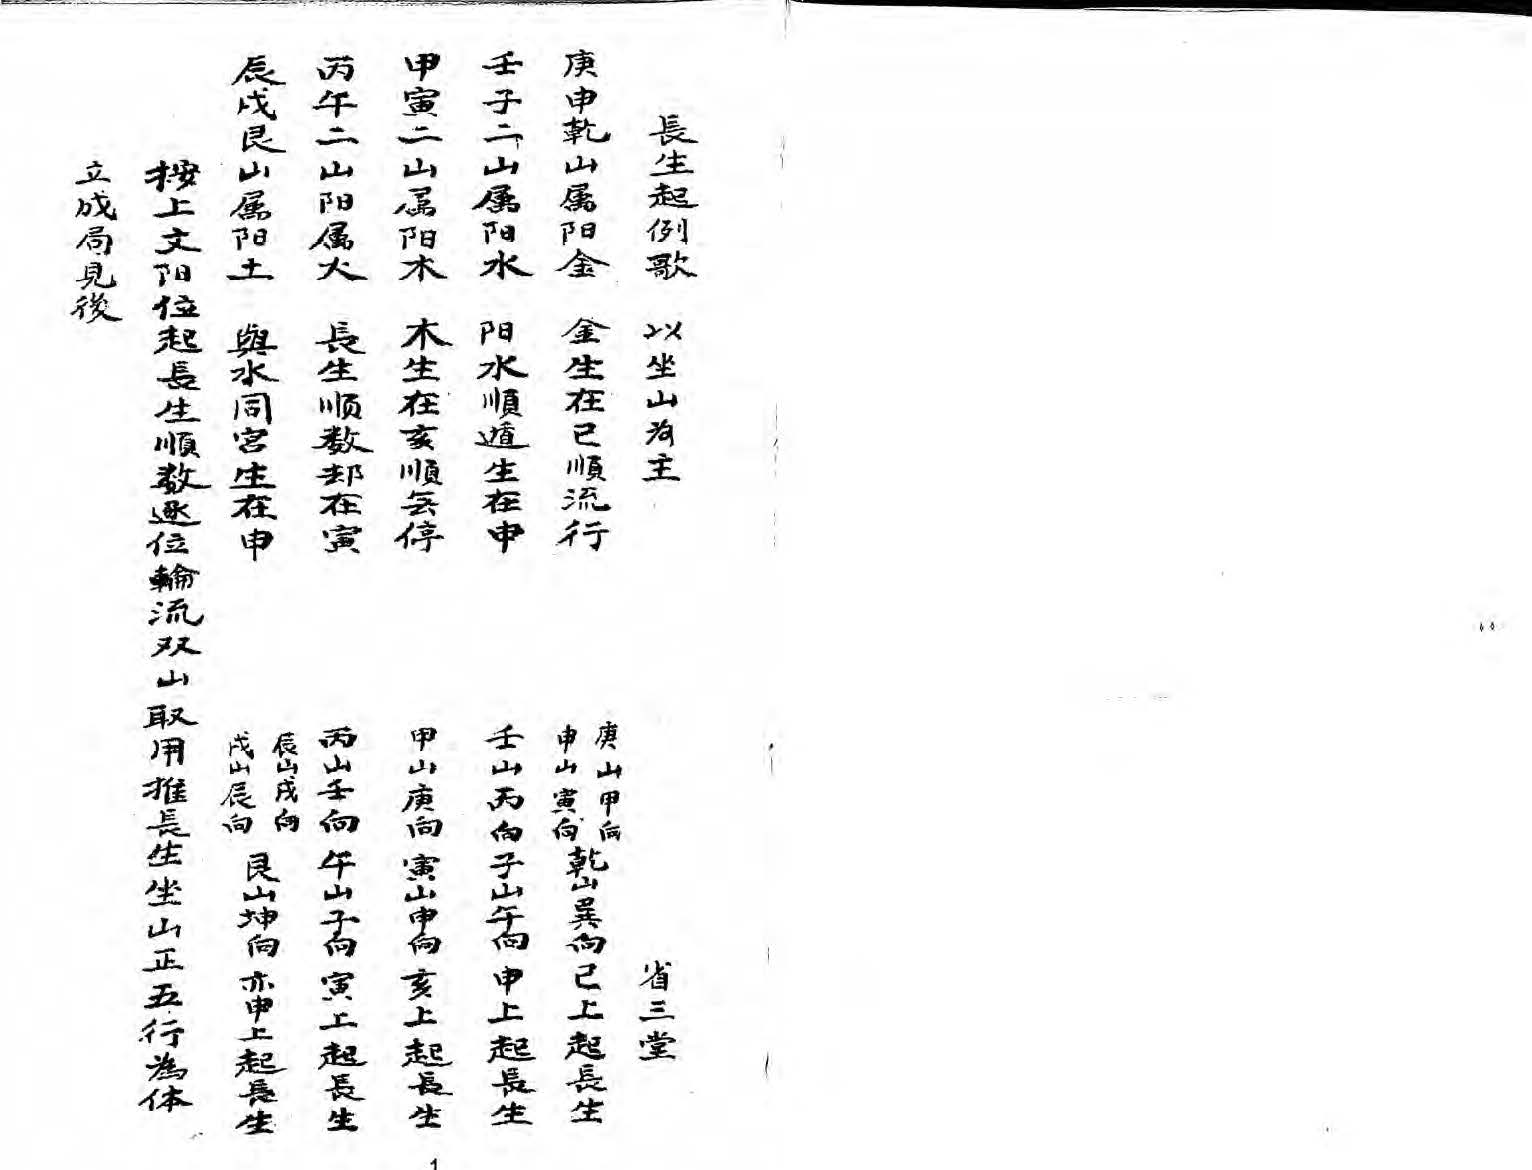 長生起例歌 以坐山为主 省三堂
庚申乾山属阳金 金生在巳順流行 庚山甲向 申山寅向 乾山巽向 巳上起長生
壬子二山属阳水 阳水順遁生在申 壬山丙向 子山午向 申上起長生
甲寅二山属阳木 木生在亥順無停 甲山庚向 寅山申向 亥上起長生
丙午二山阳属火 長生顺数却在寅 丙山壬向 午山子向 寅上起長生
辰戌艮山属阳土 與水同宮生在申 辰山戌向 戌山辰向 艮山坤向 亦申上起長生
按上文阳位起長生順数逐位輪流双山取用推長生坐山正五行為体
立成局見後
1